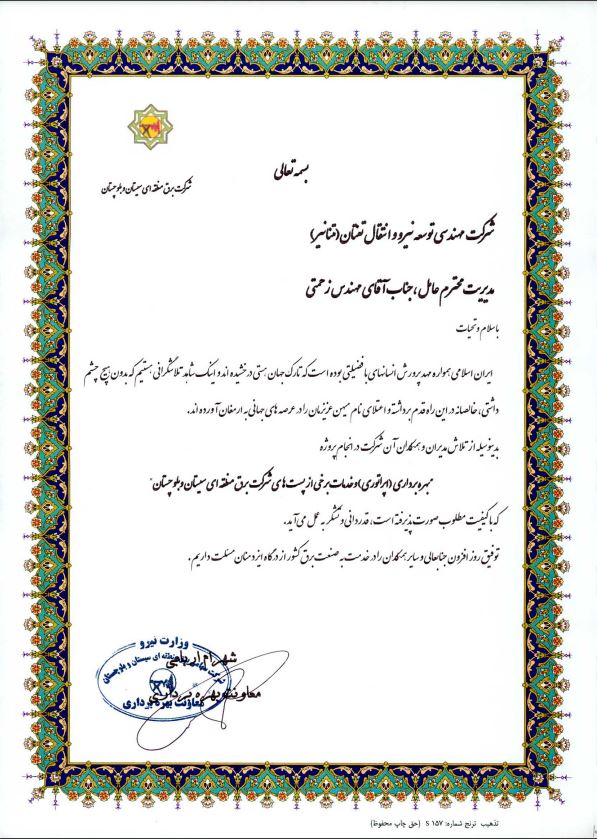 بسمه تعالی
شرکت برق منطقه ای سیستان و بلوچستان
شرکت مهندسی توسعه نیرو و انتقال تفتان (تنانیر)
مدیریت محترم عامل ، جناب آقای مهندس زحمتی
با سلام و تحیات
ایران اسلامی همواره مهد پرورش انسانهای با فضیلتی بوده است که تارک جهان هستی درخشیده اند و اینک شاهد تلاشگرانی هستیم که بدون هیچ چشم
داشتی، خالصانه در این راه قدم برداشته و اعتلای نام میهن عزیزمان را در عرصه های جهانی به ارمغان آورده اند.
بدینوسیله از تلاش مدیران و همکاران آن شرکت در انجام پروژه
بهره برداری (اپراتوری) و خدمات برخی از پست های شرکت برق منطقه ای سیستان و بلوچستان"
که با کیفیت مطلوب صورت پذیرفته است، قدردانی و تشکر به عمل می آید.
توفیق روز افزون جنابعالی و سایر همکاران را در خدمت به صنعت برق کشور از درگاه ایزد منان مسئلت داریم .
وزارت نیرو
شهرام
منطقه ای سیستان و بلوچستان
معاونت بهره برداری
معاونت بهره برداری
تذهیب ترنج شماره: S ۱۵۷ (حق چاپ محفوظ)